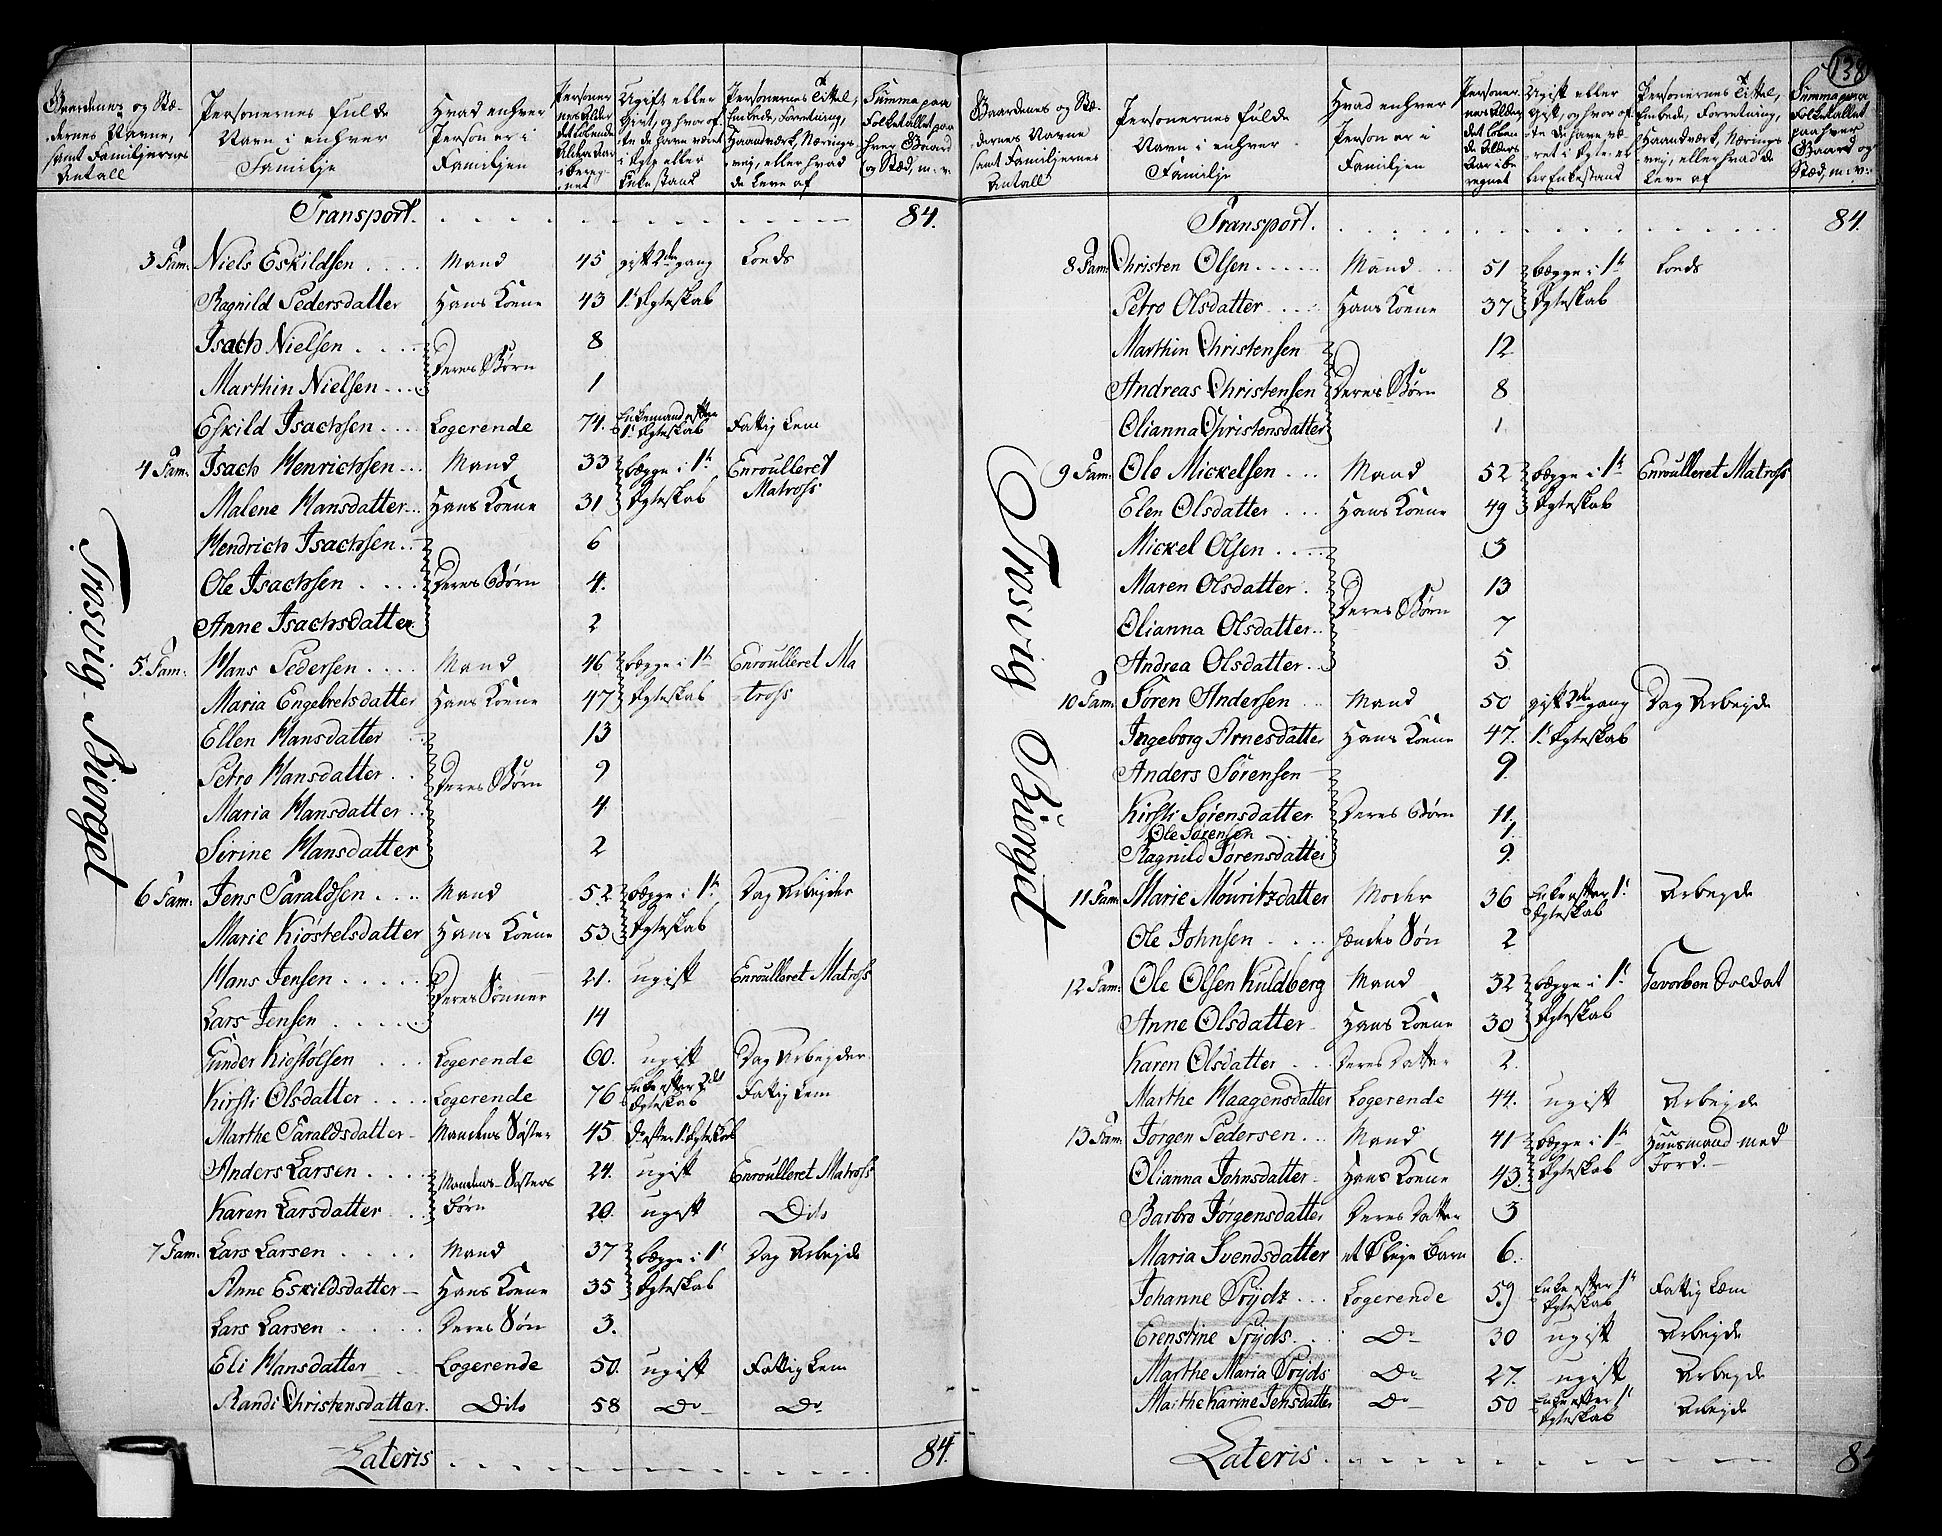 Gaardenes og Stæ-
dernes Navne,
samt Familjernes
Antall
Personernes fulde
Navn i enhver
Familje
Hvad enhver
Person er i
Familjen
Personer
nes Alder
det løbende
Alders Aar
ibereg-
net
Ugift eller
Gift, og hvor of-
te de have været
i Ægte eller
Enkestand
Personernes Tittel,
Embede, Forretning,
Haandværk, Nærings
vej, eller hvad
de leve af
Summa paa
Folketallet paa
hver Gaard
og Stæd, m: v:
Transport. 84.
Trosvig Bierget
3 Fam: Niels Eskildsen Mand 45 gift 2den gang Lods
Ragnild Pedersdatter Hans Kone 43 1t Ægteskab
Isach Nielsen 8
Deres Børn
Marthin Nielsen 1
Eskild Isachsen Logerende 74. Enkemand efter 1t Ægteskab Fattig Lem
4 Fam: Isach Henrichsen Mand 33 begge i 1te Enroulleret
Malene Hansdatter Hans Kone 31 Ægteskab Matross
Hendrich Isachsen 6
Ole Isachsen Deres Børn 4.
Anne Isachsdatter 2
5. Fam: Hans Pedersen Mand 46 begge i 1te Enroulleret Ma
Maria Engebretsdatter Hans Kone 47 Ægteskab -tross
Ellen Hansdatter 13
Petro Hansdatter 9
Deres Børn
Maria Hansdatter 4
Sirine Hansdatter 2
6 Fam: Jens Taraldsen Mand 52 begge i 1te Dag Arbejder
Marie Kiöstelsdatter Hans Kone 53 Ægteskab
Hans Jensen 21. ugift Enroulleret Matross
Deres Sønner
Lars Jensen 14
Gunder Kiestølsen Logerende 60. ugift Dag Arbejder
Kirsti Olsdatter Logerende 76 Enke efter 2det Ægteskab Fattig Lem
Marthe Taraldsdatter Mandens Søster 45 Do efter 1t Ægteskab
Anders Larsen 24. ugift Enroulleret Matross
Mandens Søsters
Børn
Karen Larsdatter 20. ugift Dito
7 Fam: Lars Larsen Mand 37 begge i 1t Dag Arbejde
Anne Eskildsdatter Hans Kone 35 Ægteskab
Lars Larsen Deres Søn 3.
Eli Hansdatter Logerende 50. ugift Fattig Lem
Randi Christensdatter. Dito 58 Do Do
Lateris 84.
138
Gaardenes og Stæ-
dernes Navne
samt Familjernes
Antall
Personernes fulde
Navn i enhver
Familje
Hvad enhver
Person er i
Familjen
Personer-
nes Alder
det løben
de Alders
Aar ibe
regnet
Ugift eller
Gift, og hvor of-
te de have væ-
ret i Ægte, el-
ler Enkestand
Personernes Tittel,
Embede, Forretning,
Haandværk, Nærings
vej, eller hvad de
leve af
Summa paa
Folketallet
paa hver
Gaard og
Stæd, m: v:
Transport. 84.
Trosvig Bierget
8 Fam: Christen Olsen Mand 51 begge i 1te Lods
Petro Olsdatter Hans Kone 37 Ægteskab
Marthin Christensen 12
Andreas Christensen Deres Børn 8
Olianna Christensdatter 1
9 Fam: Ole Mickelsen Mand 52 begge i 1te Enroulleret Matross
Elen Olsdatter Hans Kone 49 Ægteskab
Mickel Olsen 3
Maren Olsdatter 13
Deres Børn
Olianna Olsdatter 7
Andrea Olsdatter 5.
10 Fam: Søren Andersen Mand 50 gift 2den gang Dag Arbejde
Ingeborg Arnesdatter Hans Kone 47. 1t Ægteskab
Anders Sørensen 9.
Kirsti Sørensdatter Deres Børn 11.
Ole Sørensen 1.
Ragnild Sørensdatter 9.
11 Fam: Marie Mouritzdatter Moder 36 Enke efter 1t Ægteskab Arbejde
Ole Johnsen hendes Søn 2
12 Fam: Ole Olsen Kuldberg Mand 32 begge i 1t Gevorben Soldat
Anne Olsdatter Hans Kone 30 Ægteskab
Karen Olsdatter Deres Datter 2.
Marthe Haagensdatter Logerende 44. ugift Arbejde
13 Fam: Jørgen Pedersen Mand 41 begge i 1te Huusmand med
Olianna Johnsdatter Hans Kone 43. Ægteskab Jord.
Barbro Jørgensdatter Deres Datter 3
Maria Svendsdatter et Pleje Barn 6.
Johanne Prÿdz Logerende 59 Enke efter 1t Ægteskab Fattig Lem
Erenstine Prÿds Do 30 ugift Arbejde
Marthe Maria Prÿds Do 27. ugift Arbejde
Marthe Karine Jensdatter Do 50 Enke efter 1t Ægteskab Arbejde
Lateris. 8